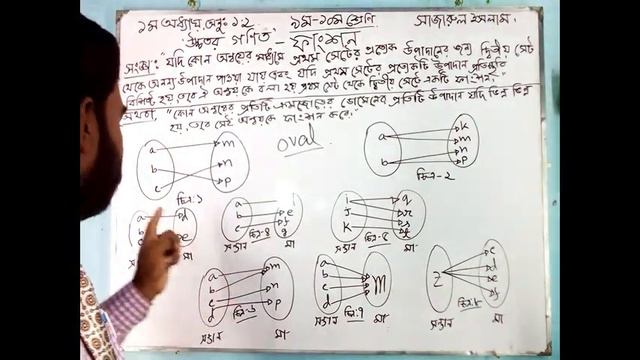 ১ম অধ্যায় সেনু: ১২ ৯ম-১০ম শ্রেণি সাজারুল ইসলাম.
উচ্চতর গণিত - ফাংশন
সংজ্ঞা: "যদি কোন অন্বয়ের মাধ্যমে প্রথম সেটের প্রত্যেক উপাদানের জন্য দ্বিতীয় সেট
থেকে অনন্য উপাদান পাওয়া যায় এবং যদি প্রথম সেটের প্রত্যেকটি উপাদান
হয়, তবে ঐ অন্বয় কে বলা হয় প্রথম সেট থেকে দ্বিতীয় সেটে একটি ফাংশন."
অথবা, "কোন অন্বয়ের প্রতিটি ডোমেনের প্রতিটি উপাদান যদি ভিন্ন ভিন্ন
হয়, তবে সেই অন্বয়কে ফাংশন বলে."
oval
a b c m n p
চিত্র:১
a b k m n p
চিত্র-২
a b d e
সন্তান মা
a b c i e f g
চিত্র-৪
সন্তান মা
i j k q r s
চিত্র-৫
সন্তান মা
a b c d m n p
চিত্র-৬
সন্তান মা
a b c d m
চিত্র:৭
সন্তান মা
2 c d e f
চিত্র:৮
সন্তান মা